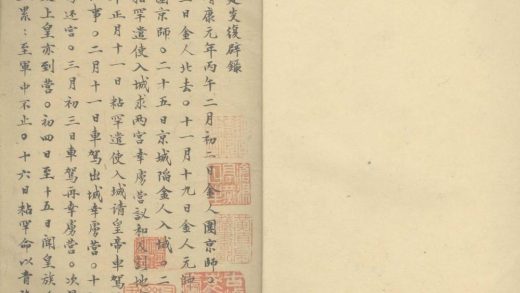 炎復辟錄
康元年丙午二月初二日金人圍京師。
日金人北去。十一月十九日金人元帥
圍京師。二十五日京城陷金人入城。二
粘罕遣使入城求兩宮幸虜營議和及割地
年正月十一日粘罕遣使入城請皇帝車駕
事。二月十一日車駕出城幸虜營。十
宮。三月初三日車駕再幸虜營。次
上皇亦到營。初四日至十五日聞皇族
累:至軍中不止。十六日粘罕命以青